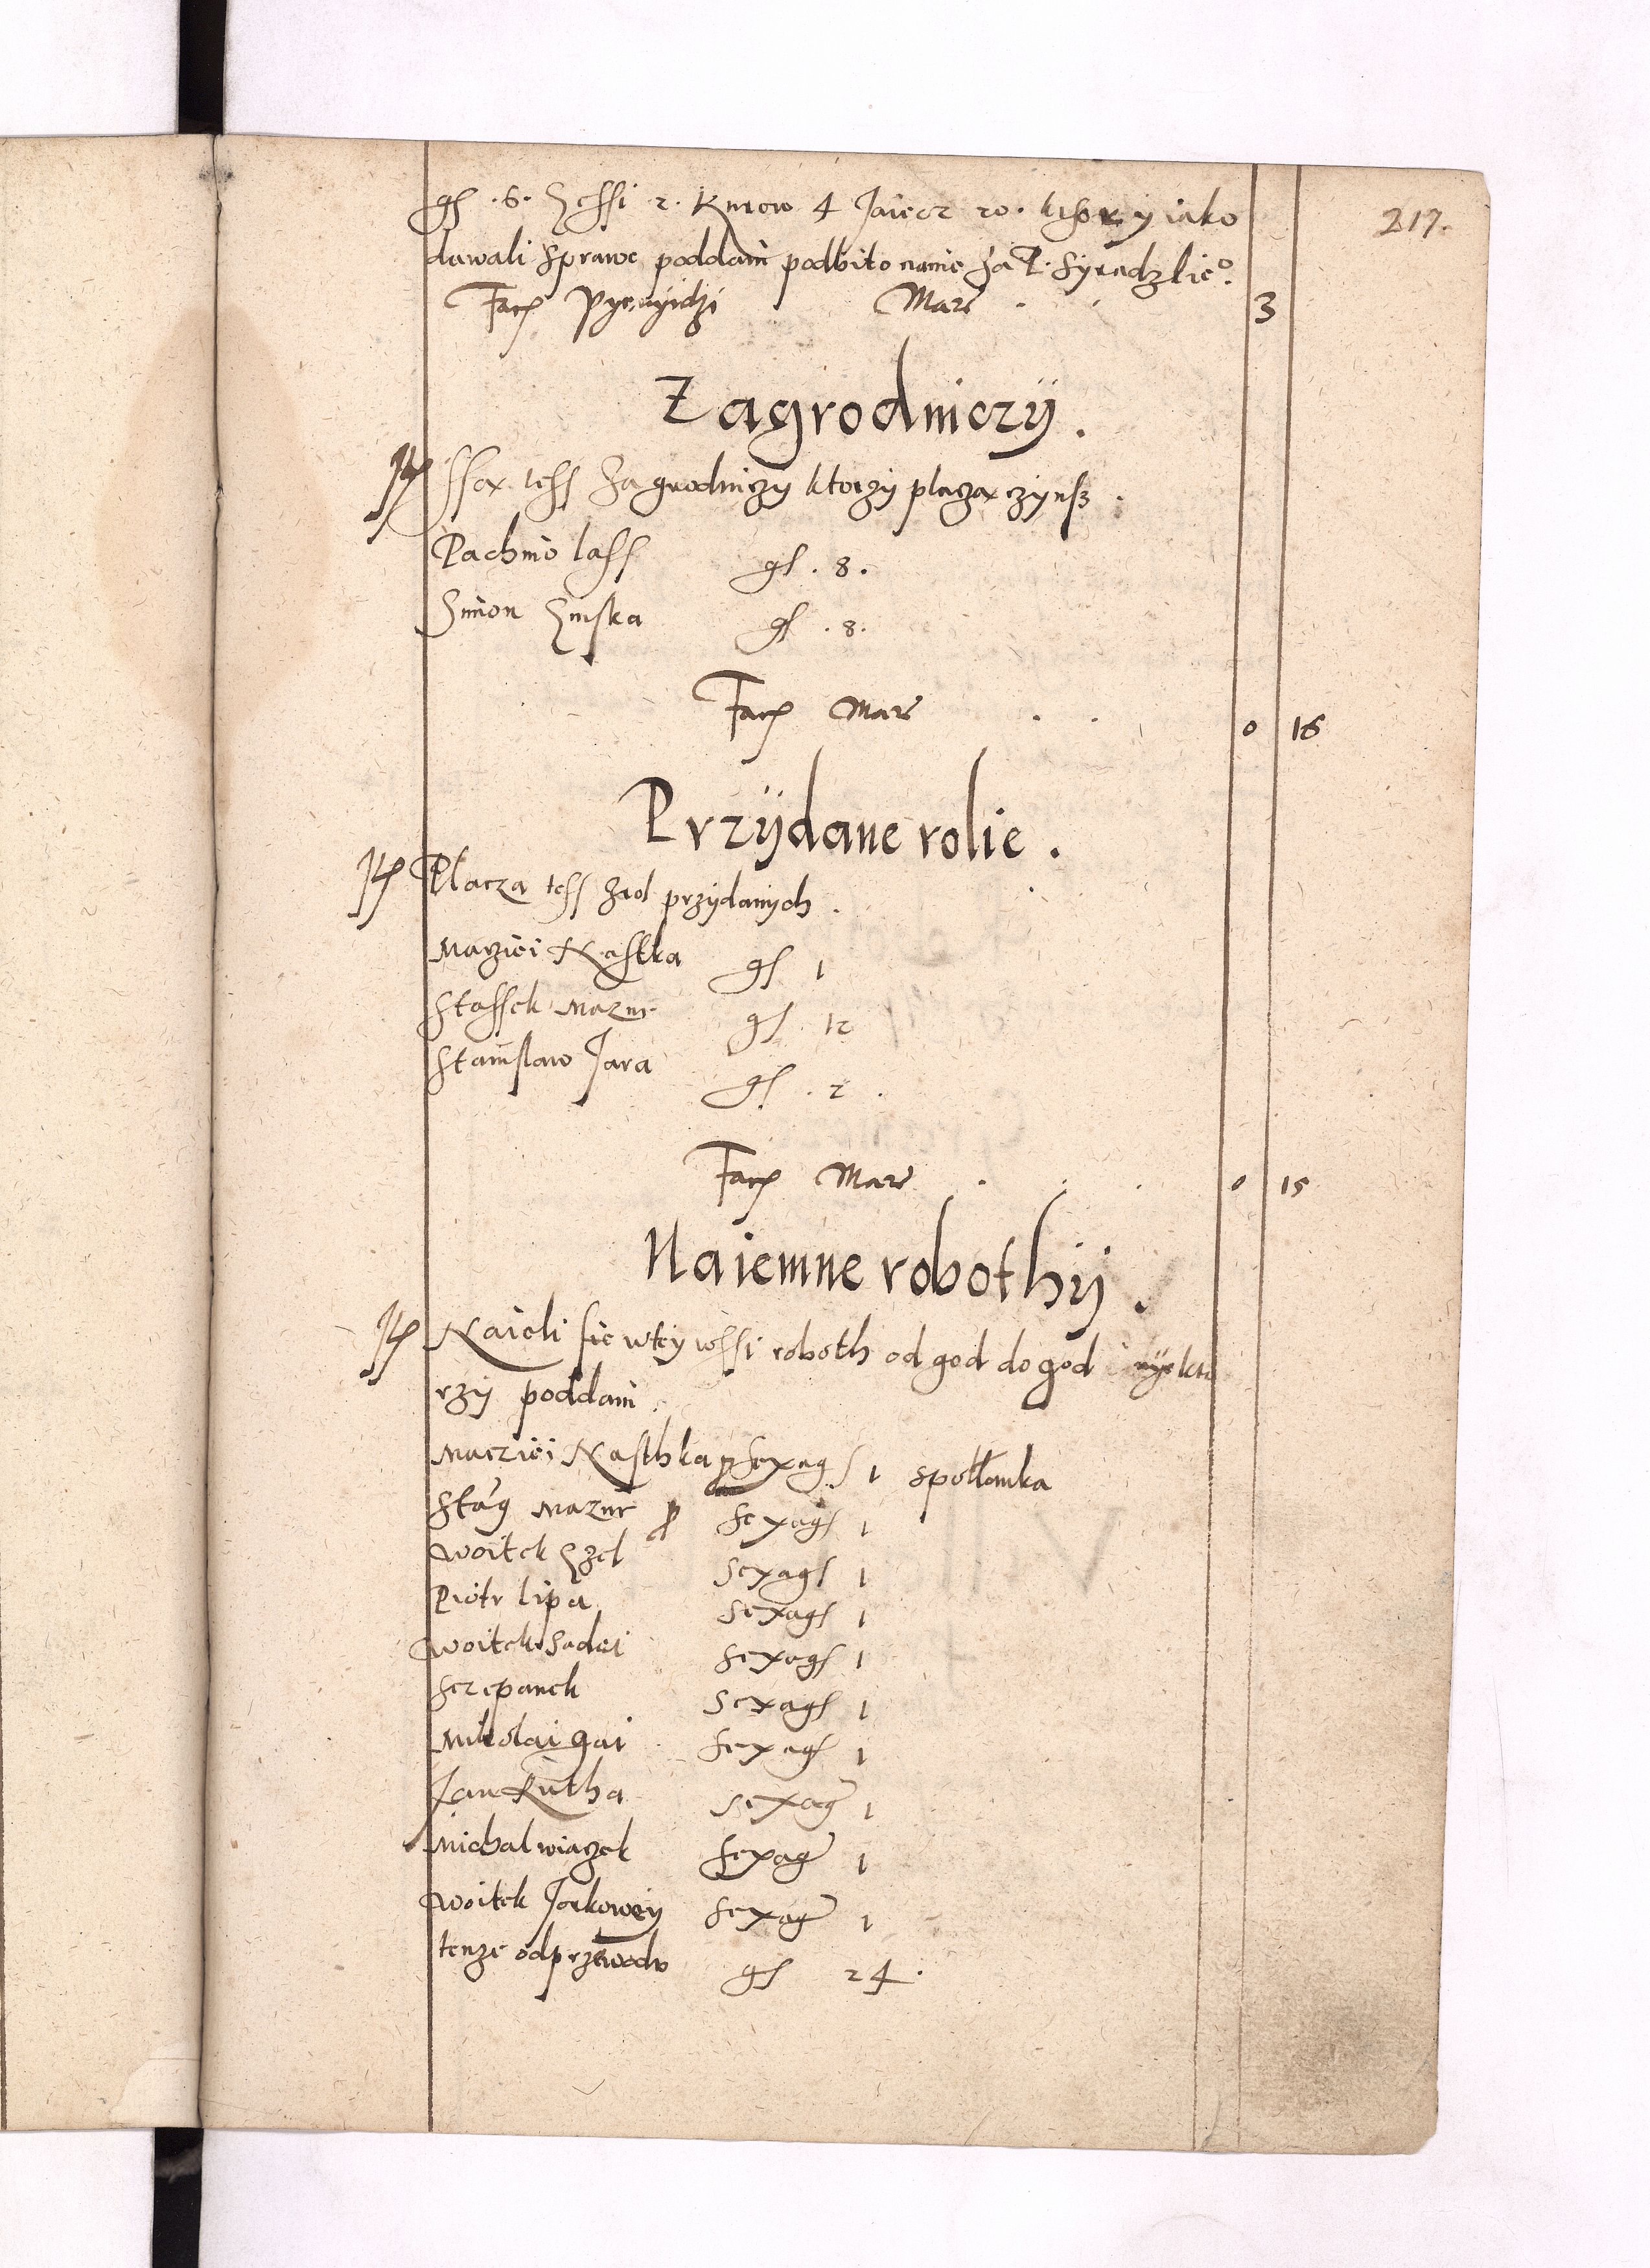 217.
gs .6. Gessi 2. Kurow 4 Jaiecz 20. ktory y iako
dawali sprawe poddani podbito nanie za P. Syradzkie°.
Facit Pyenyidzi Marc . . 3
Zagrodniczÿ.
Jt Ssa tess Zagrodniczy ktorzy placza czynss.
Pachno lass gs. 8.
Simon Gąska gs .8.
Facit Marc . . 0 16
Przÿdane rolie.
Jt Placza tess zrol przydanych.
Maziei Nastka gs 1
Stassek Mazur gs. 12
Stanislaw Jara gs. 2.
Facit Marc . . . 0 15
Naiemne robothÿ.
Jt Naieli sie wtey wssi roboth od god do god nyekto
rzy poddani.
Macziei Nasthka p sexags 1 spollowka
Stąs Mazur p sexags 1
Woitek sexags 1
Piotr lipa sexags 1
Woitek Sadei sexags 1
Sczepanek sexags 1
Mikolai gai sexags 1
Jan Kutha sexag 1
Michal wiązek sexag 1
Woitek Jarkowy sexag 1
tenze odprzewodu gs 24.